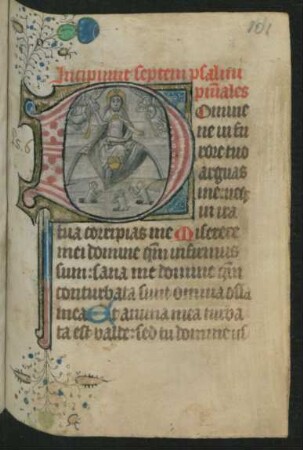 101
Incipiunt septem psalmi
pīnales
Ps. 6
Domine
ne in fu
rore tuo
arguas
me: neqꝫ
in ira
tua corripias me Miserere
mei domine qm̄ infirmus
sum: sana me domine qm̄
conturbata sunt omnia ossa
mea Et anima mea turba
ta est valde: sed tu domine us